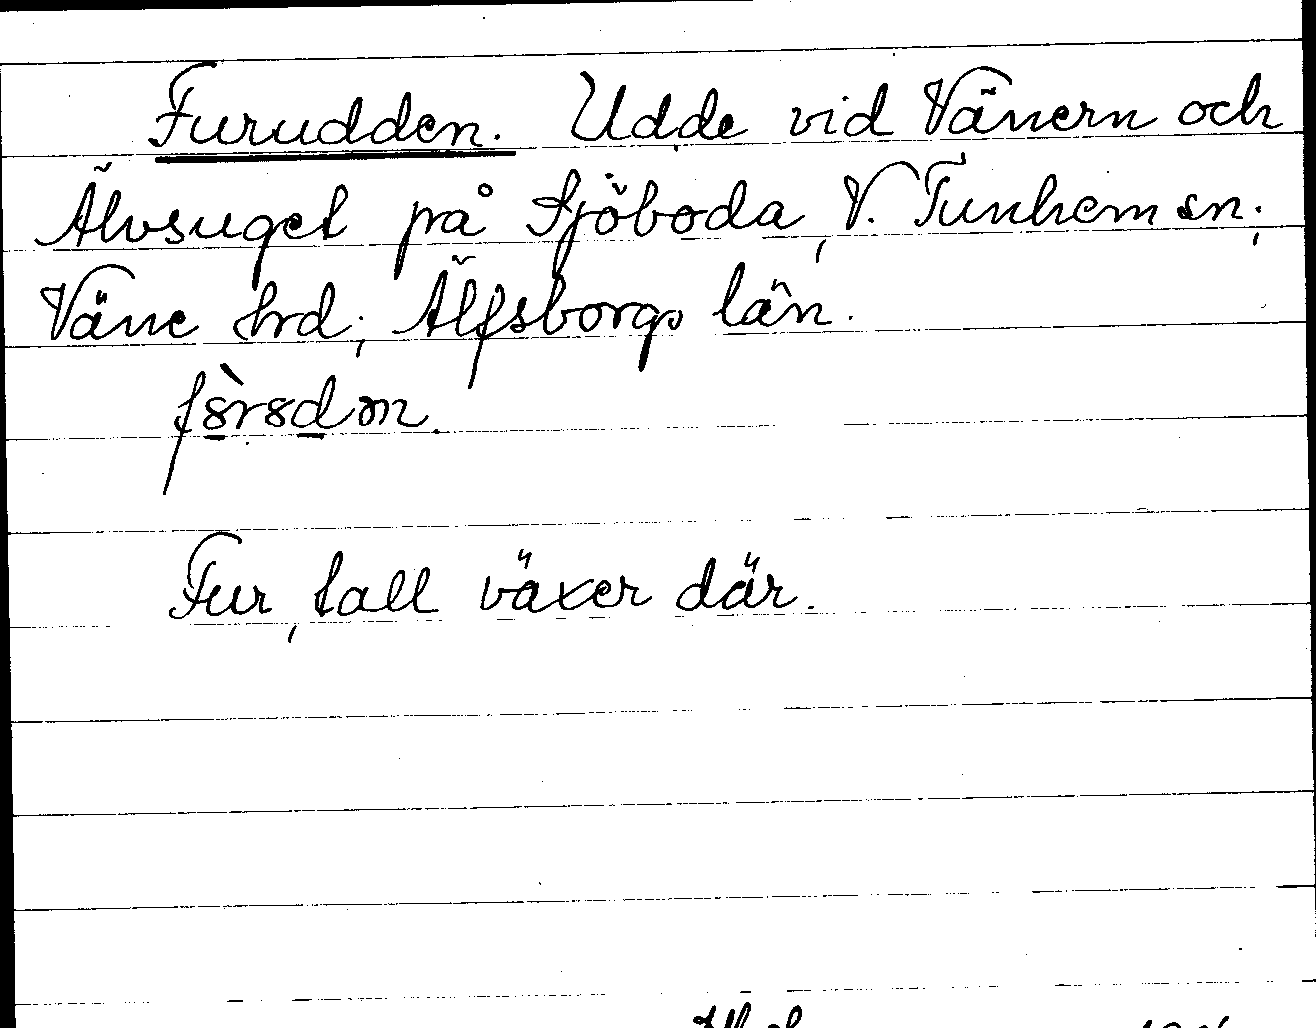 Furudden. Udde vid Vänern och
Älvsuget på Sjöboda, V. Tunhem sn;
Väne hrd, Älfsborgs län.
Fur, tall växer där.